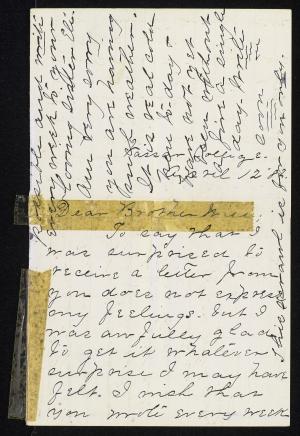 Vassar College.
April 12th
Dear Brother Will,
To say that I
was surprised to
receive a letter from
you does not express
my feelings. But I
was awfully glad
to get it whatever
surprise I may have
felt. I wish that
you wrote every week
possible and write
every week to your
loving sister
Am very sorry
you are having
such weather.
It is real cold
here to-day &
have not yet
been without
a fire a single
day. Write
soon